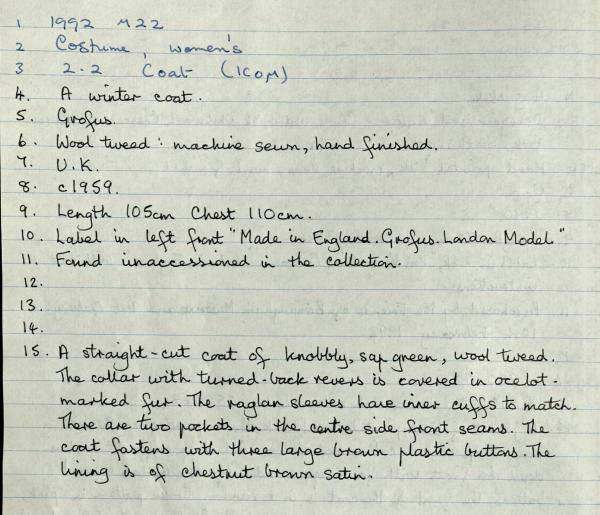 1 1992 M22
2 Costume, women's
3 2.2 Coat (ICOM)
4. A winter coat.
5. Grofus.
6. Wool tweed: machine sewn, hand finished.
7. U.K.
8. c1959.
9. Length 105cm Chest 110cm.
10. Label in left front "Made in England. Grofus. London Model."
11. Found unaccessioned in the collection.
12.
13.
14.
15. A straight-cut coat of knobbly, sap green, wool tweed.
The collar with turned-back revers is covered in ocelot-
marked fur. The raglan sleeves have inner cuffs to match.
There are two pockets in the centre side front seams. The
coat fastens with three large brown plastic buttons. The
lining is of chestnut brown satin.